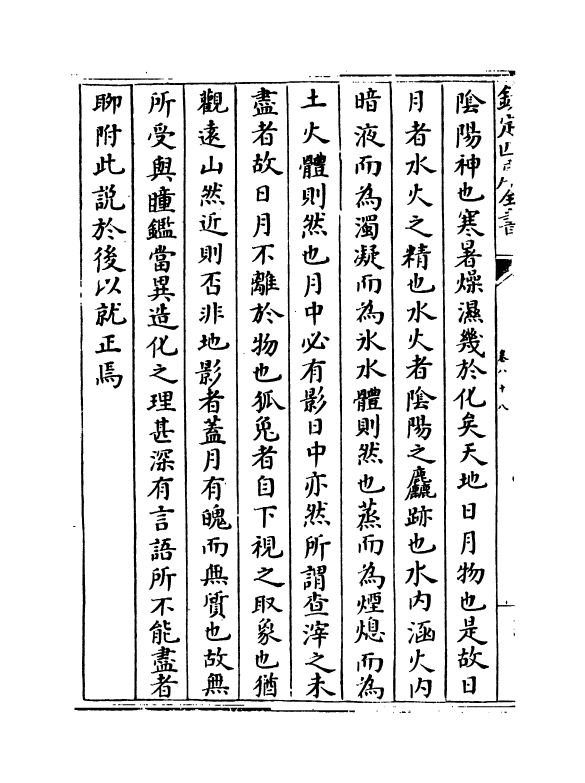 欽定四庫全書
卷八十八
陰陽神也寒暑燥濕幾於化矣天地日月物也是故日
月者水火之精也水火者陰陽之麤跡也水内涵火内
暗液而為濁凝而為氷水體則然也蒸而為煙熄而為
土火體則然也月中必有影日中亦然所謂查滓之未
盡者故日月不離於物也狐兔者自下視之取象也猶
觀遠山然近則否非地影者蓋月有魄而無質也故無
所受與瞳鑑當異造化之理甚深有言語所不能盡者
聊附此説於後以就正焉